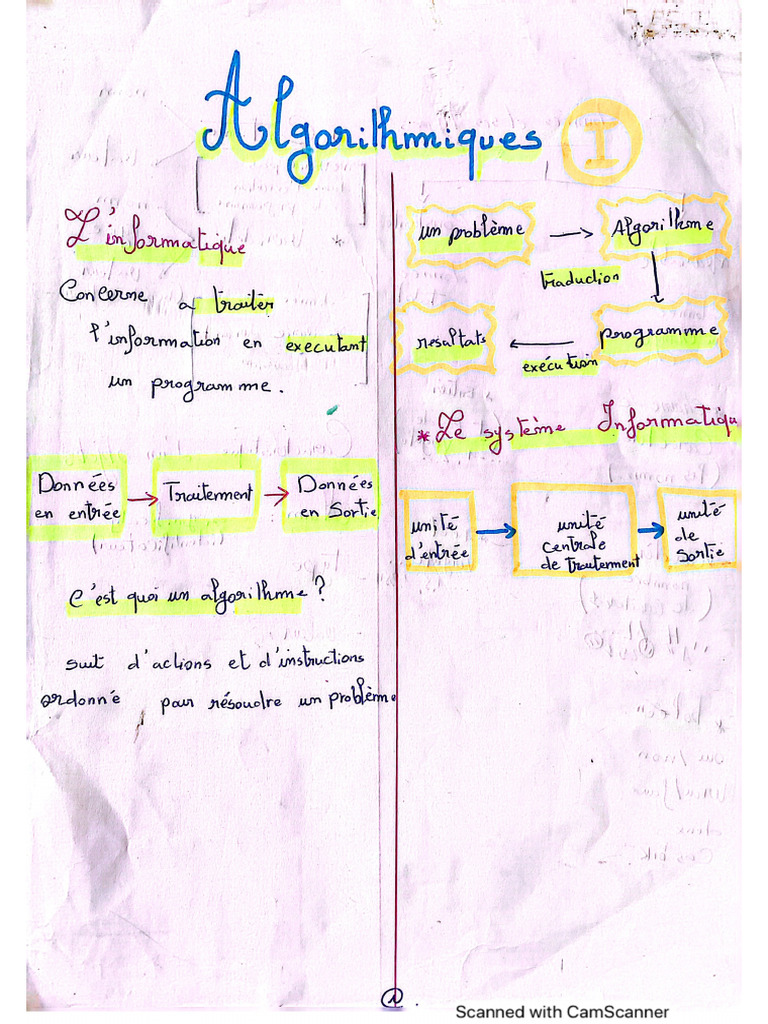 Algorithmiques I
L'informatique
Concerne a traiter
l'information en executant
un programme.
Données
en entrée
Traitement
Données
en Sortie
c'est quoi un algorithme ?
suit d'actions et d'instructions
ordonné pour résoudre un problème
un problème
Algorithme
traduction
programme
exécution
resultats
* Le système Informatiqu
unité
d'entrée
unité
centrale
de traitement
unité
de
Sortie
1
Scanned with CamScanner